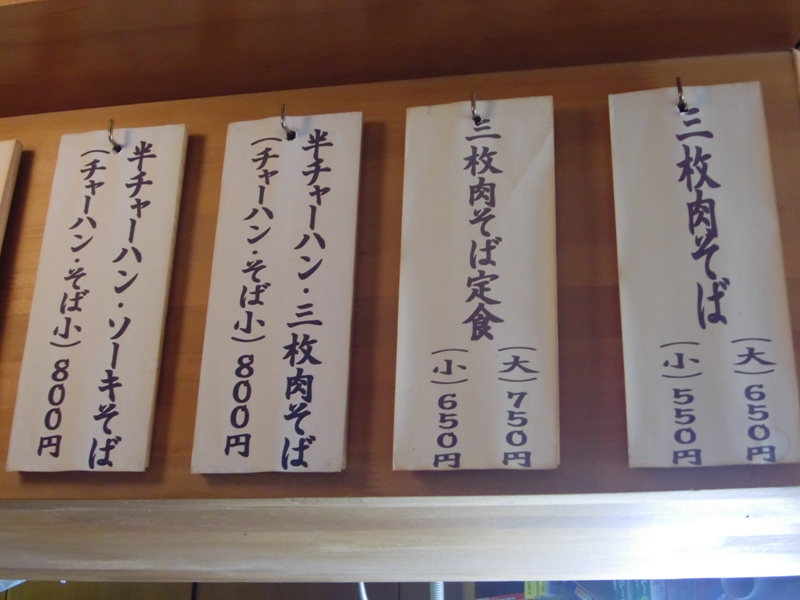 三枚肉そば
(大)650円
(小)550円
三枚肉そば定食
(大)750円
(小)650円
半チャーハン・三枚肉そば
(チャーハン・そば小)800円
半チャーハン・ソーキそば
(チャーハン・そば小)800円